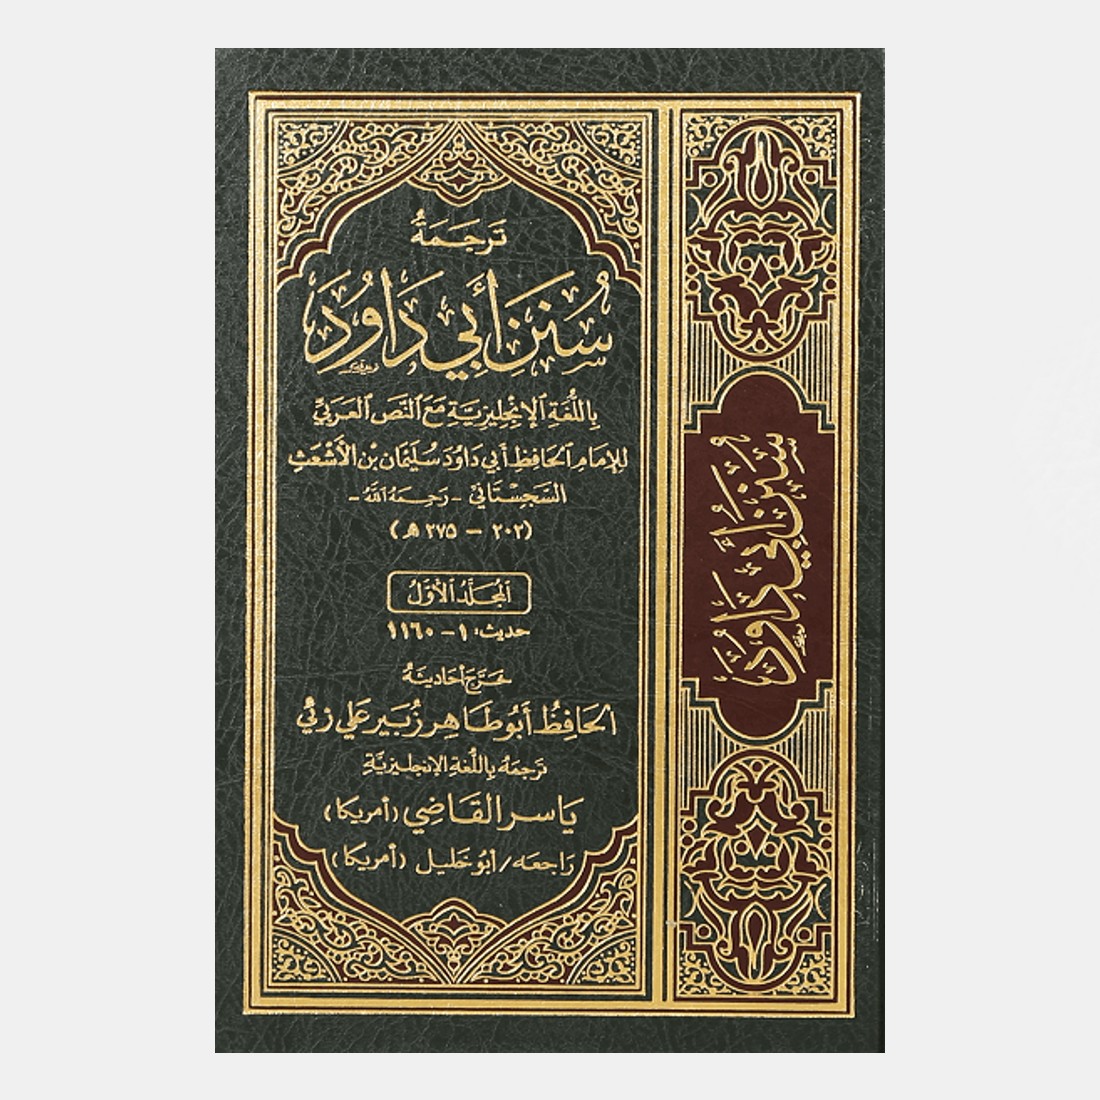 تَرجَمَةُ
سُنَن أَبي دَاوُدَ
بِاللُّغَةِ الإِنْجِلِيزِيَّةِ مَعَ النَّصِ العَرَبيِّ
لِلإِمَامِ الحَافِظِ أَبي دَاوُد سُلَيمَان بْن الأَشْعَثِ
السَّجِسْتَانيِّ - رَحِمَهُ اللَّهُ -
(٢٠٢ – ٢٧٥ هـ)
المُجَلَّدُ الأَوَّلُ
حديث: ١ – ١١٦٠
خَرَّجَ أحَادِيثَهُ
الحَافِظُ أَبُو طَاهِر زُبَير عَلي زَئي
تَرجَمَهُ بِاللُّغَةِ الإنجليزيَّةِ
يَاسر القَاضِي (أمريكا)
رَاجعَه / أبُو خَليل (أمريكا)
سُنَن أَبي دَاوُدَ